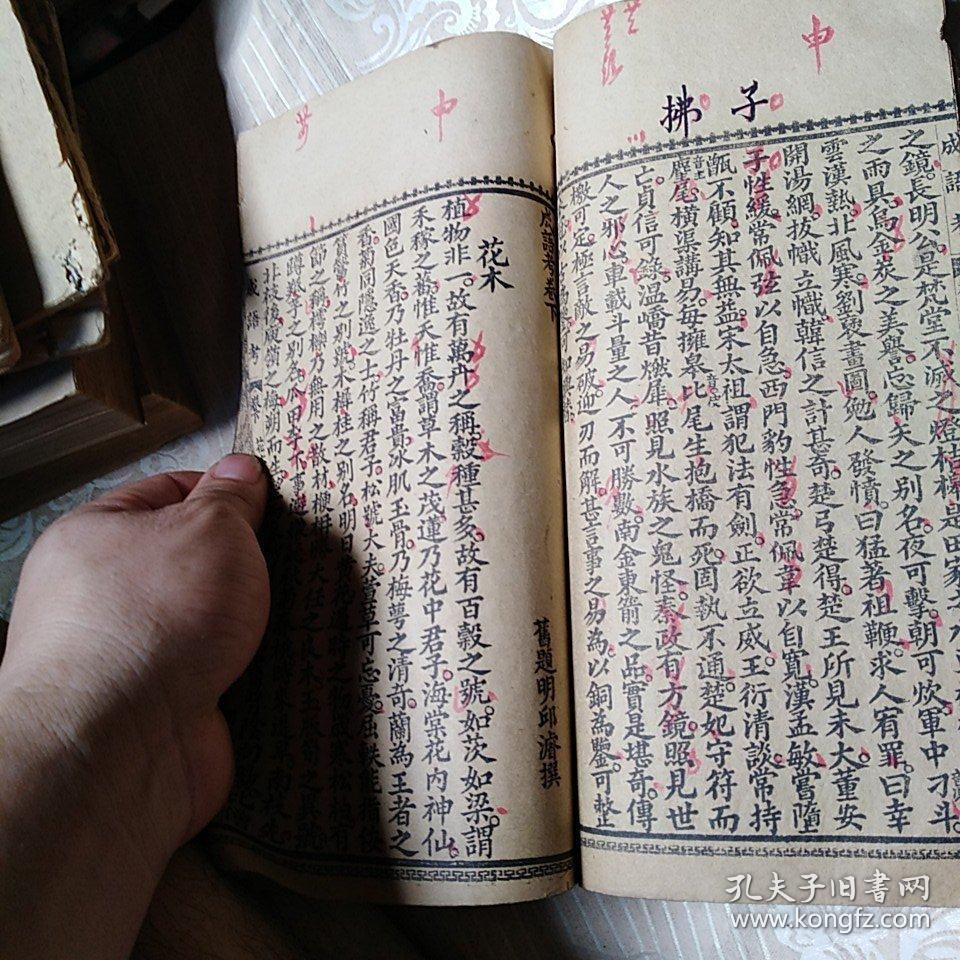 申
子拂
成語考
之鏡。長明公是梵堂不滅之燈。桔槔是田家之水
之雨具。烏金炭之美譽。忘歸矢之別名。夜可擊。朝可炊。軍中刁斗。
雲漢熱。北風寒。劉褒畫圖。勉人發憤。曰猛著祖鞭。求人宥罪。曰幸
開湯網。拔幟立幟。韓信之計甚奇。楚弓楚得。楚王所見未大。董安
于性緩。常佩弦以自急。西門豹性急。常佩韋以自寬。漢孟敏嘗墮
甑不顧。知其無益。宋太祖謂犯法有劍。正欲立威。王衍清談。常持
麈尾。橫渠講易。每擁皋比。尾生抱橋而死。固執不通。楚妃守符而
亡。貞信可錄。溫嶠昔燃犀。照見水族之鬼怪。秦政有方鏡。照見世
人之邪心。車載斗量之人。不可勝數。南金東箭之品。實是堪奇。傳
檄可定。極言敵之易破。迎刃而解。甚言事之易為。以銅為鑒。可整
申
成語考卷下
舊題明邱濬撰
花木
植物非一。故有萬卉之稱。穀種甚多。故有百穀之號。如茨如梁。謂
禾稼之蕃。惟夭惟喬。謂草木之茂。蓮乃花中君子。海棠花內神仙。
國色天香。乃牡丹之富貴。冰肌玉骨。乃梅萼之清奇。蘭為王者之
香。菊同隱逸之士。竹稱君子。松號大夫。萱草可忘憂。屈軼能指佞
篔簹竹之別號。木樨桂之別名。明日黃花。過時之物。歲寒松柏。有
節之稱。樗櫟乃無用之散材。楩楠勝大任之良木。玉版筍之異號
蹲鴟芋之別名。瓜田
成語考
孔夫子旧书网
www.kongfz.com